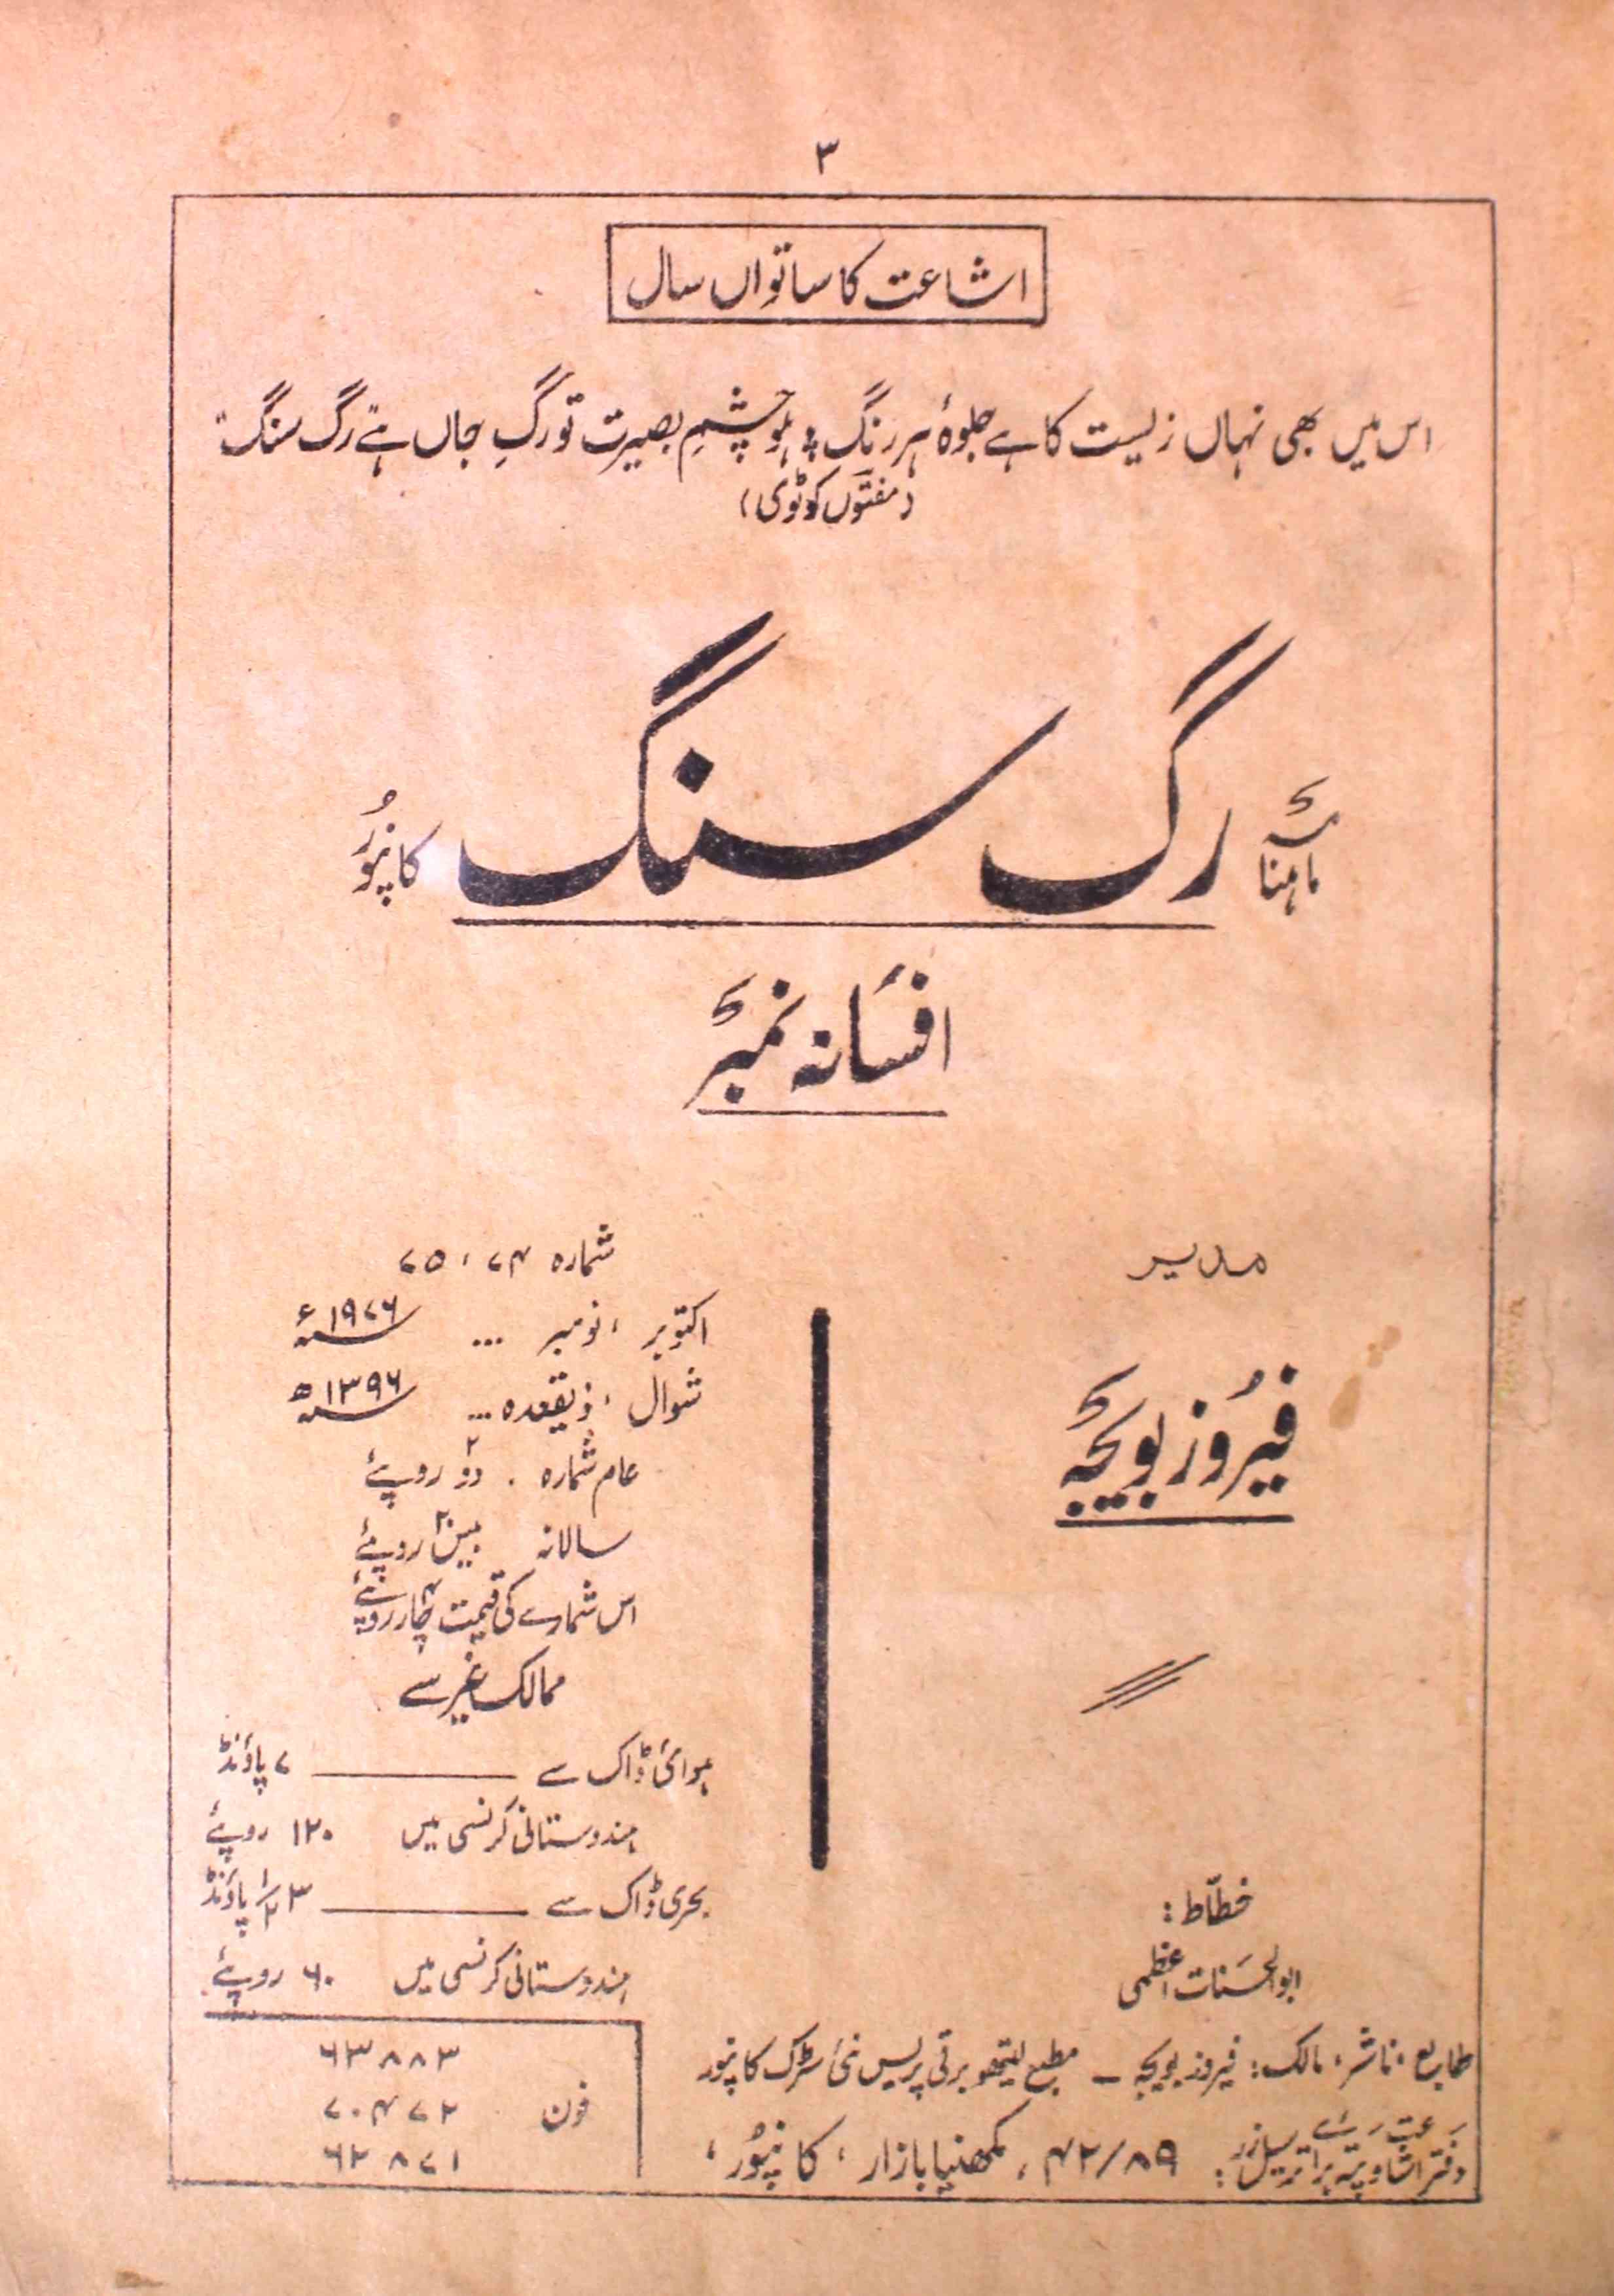 ۳
اشاعت کا ساتواں سال
اس میں بھی نہاں زیست کا ہے جلوۂ ہر رنگ ؛ ہو چشمِ بصیرت تو رگِ جاں ہے رگ سنگ
(مفتوں کوٹوی)
ماہنامہ رگ سنگ کانپور
افسانہ نمبر
مدیر
فیروز بویجہ
خطّاط :
ابوالحسنات اعظمی
شمارہ ۷۴، ۷۵
اکتوبر ، نومبر ... ۱۹۷۶ء
شوال ، ذیقعدہ ... ۱۳۹۶ھ
عام شمارہ . دو۲ روپئے
سالانہ بیس۲۰ روپئے
اس شمارے کی قیمت چار۴ روپئے
ممالک غیر سے
ہوائی ڈاک سے ــــــــ ۷ پاؤنڈ
ہندوستانی کرنسی میں ۱۲۰ روپئے
بحری ڈاک سے ــــــــ ۳ ۱/۲ پاؤنڈ
ہندوستانی کرنسی میں ۶۰ روپئے
طابع ، ناشر ، مالک : فیروز بویجہ ــ مطبع لیتھو برقی پریس نئی سڑک کانپور
دفتر اشاعت و پتہ برائے ترسیل زر : ۴۲/۸۹ ، مکھنیا بازار ، کانپور ،
فون
۶۳۸۸۳
۷۰۴۷۲
۶۲۸۷۱